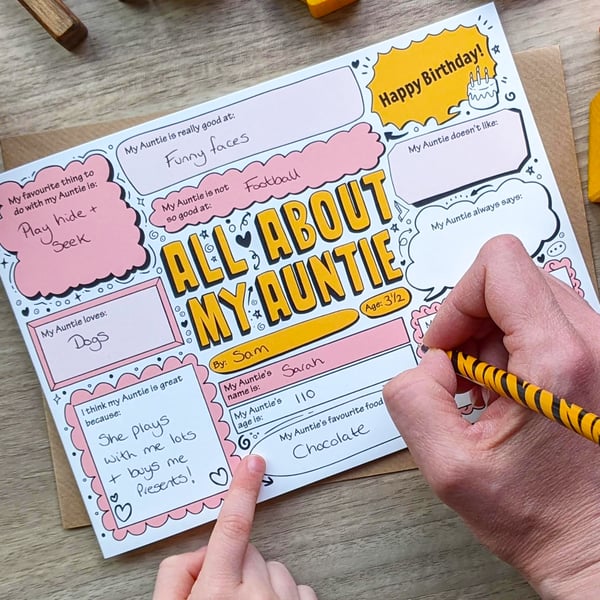 Happy Birthday!
My Auntie is really good at:
Funny faces
My Auntie is not
so good at:
Football
My favourite thing to
do with my Auntie is:
Play hide +
Seek
My Auntie doesn't like:
My Auntie always says:
ALL ABOUT
MY AUNTIE
By: Sam
Age: 3½
My Auntie loves:
Dogs
My Auntie's
name is:
Sarah
My Auntie's
age is:
110
My Auntie's favourite food
Chocolate
I think my Auntie is great
because:
She plays
with me lots
+ buys me
Presents!